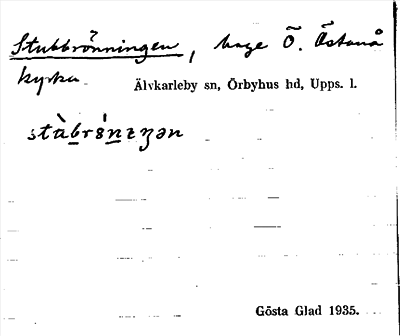 Stubbrönningen, hage Ö. Östanå
kyrka
Älvkarleby sn, Örbyhus hd, Upps. l.
Gösta Glad 1935.